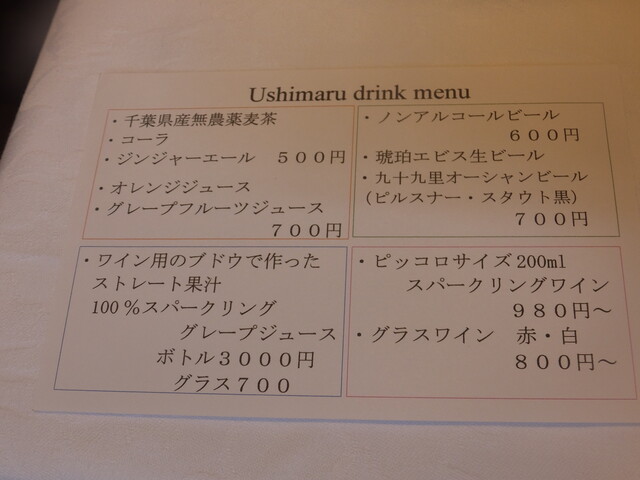 Ushimaru drink menu
・千葉県産無農薬麦茶
・コーラ
・ジンジャーエール　５００円
・オレンジジュース
・グレープフルーツジュース
７００円
・ノンアルコールビール
６００円
・琥珀エビス生ビール
・九十九里オーシャンビール
（ピルスナー・スタウト黒）
７００円
・ワイン用のブドウで作った
ストレート果汁
100％スパークリング
グレープジュース
ボトル３０００円
グラス７００
・ピッコロサイズ200ml
スパークリングワイン
９８０円～
・グラスワイン　赤・白
８００円～